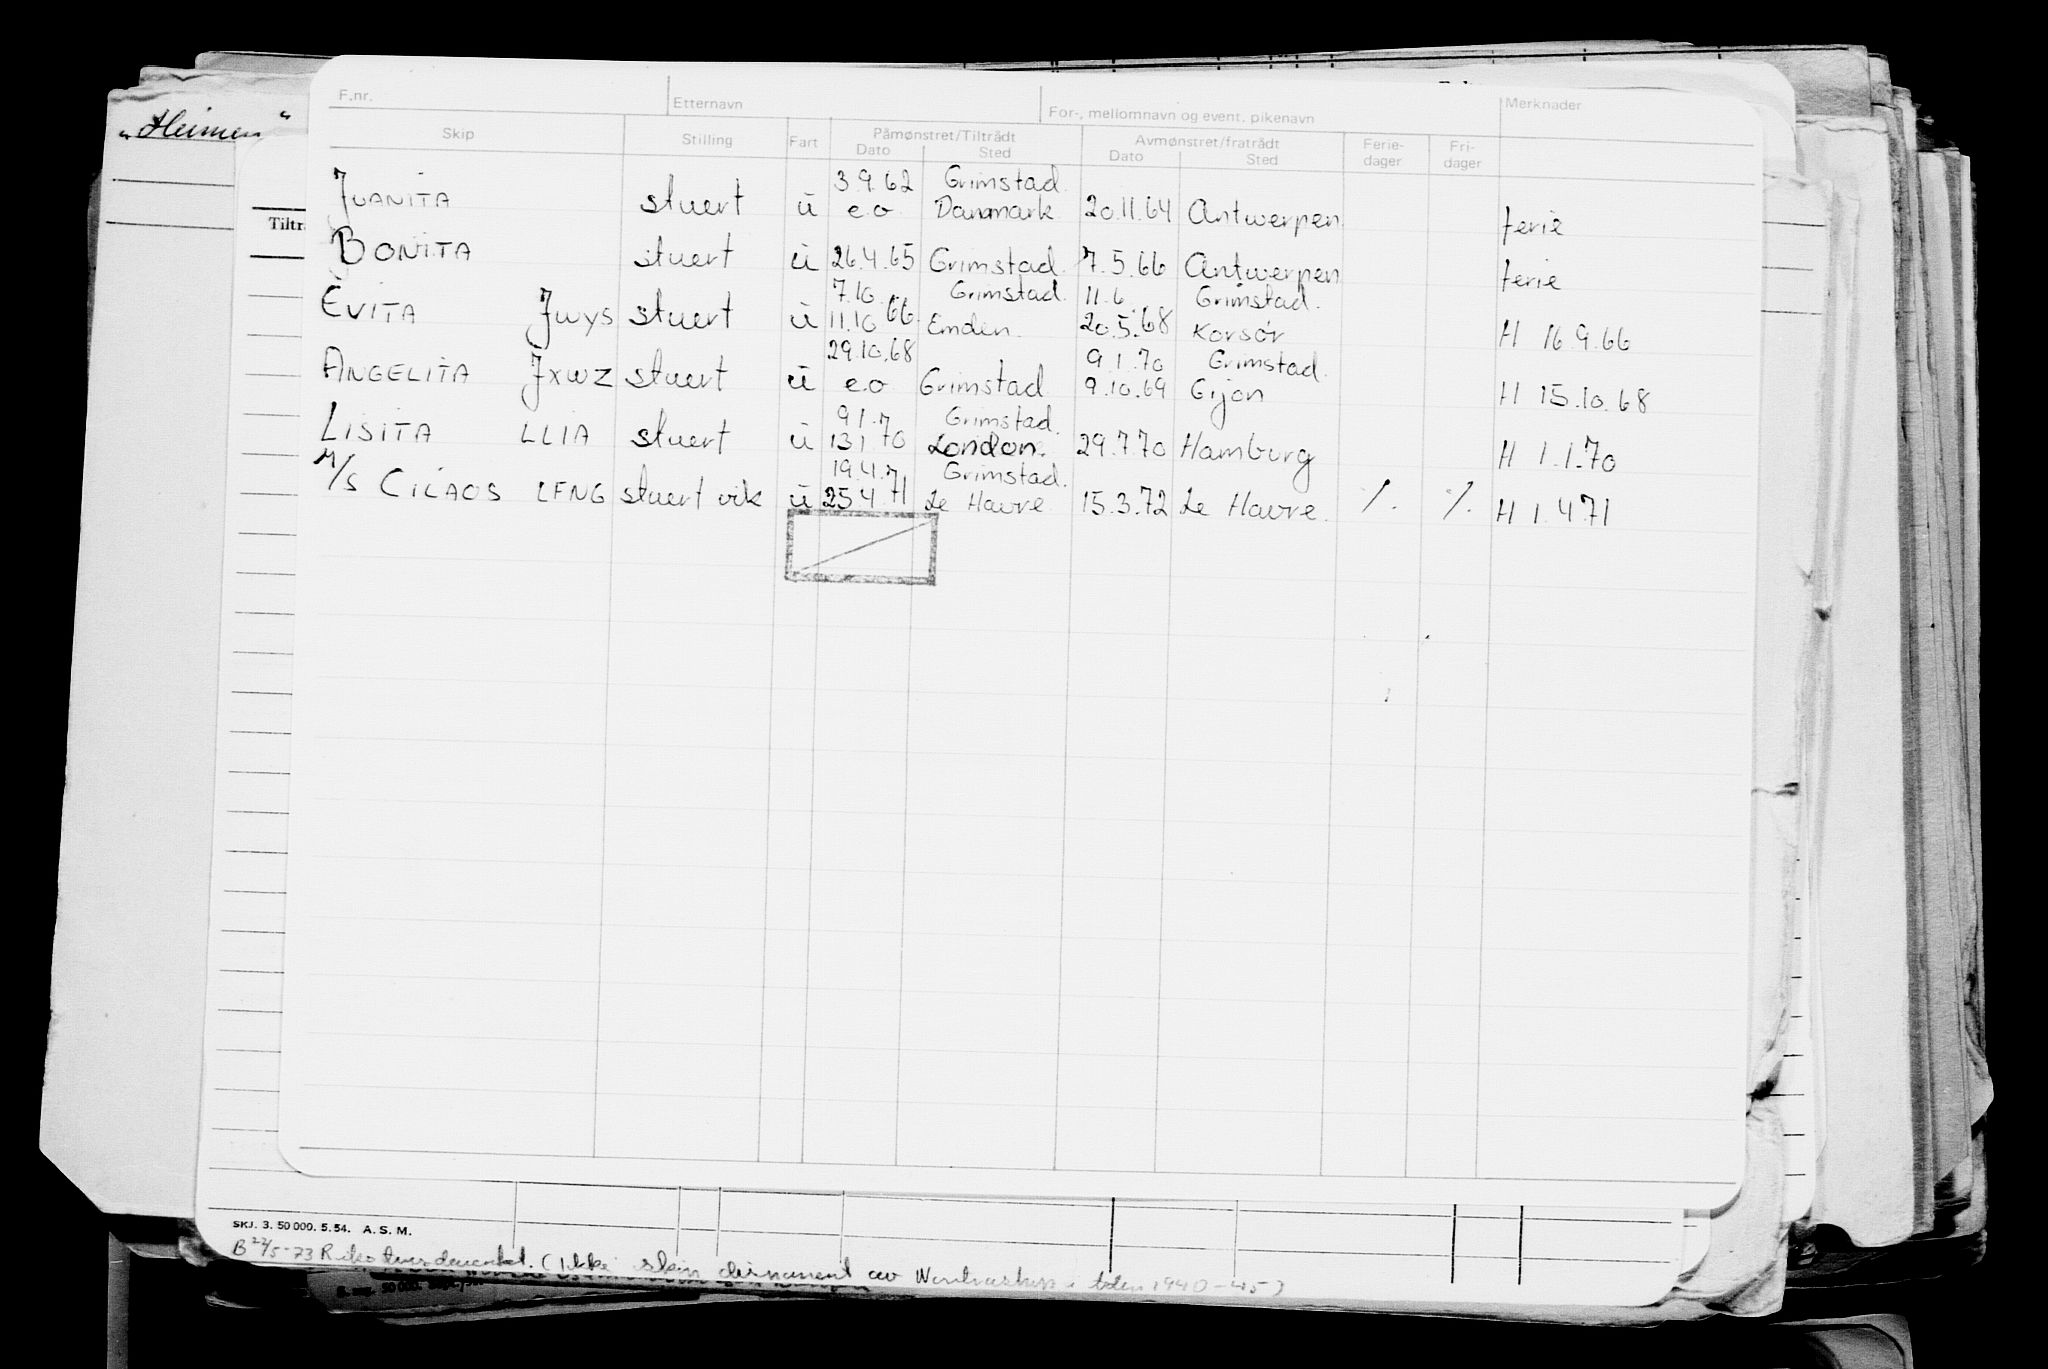 „Heimen"
F.nr. Etternavn For-, mellomnavn og event. pikenavn Merknader
Skip Stilling Fart Påmønstret/Tiltrådt Avmønstret/fratrådt Ferie- Fri-
Dato Sted Dato Sted dager dager
3.9.62 Grimstad.
JUANITA stuert ü e.o. Danmark 20.11.64 Antwerpen ferie
BONITA stuert ü 26.4.65 Grimstad. 7.5.66 Antwerpen ferie
7.10 Grimstad. 11.6. Grimstad.
EVITA JWYS stuert ü 11.10.66. Emden. 20.5.68 Korsör H 16.9.66
29.10.68 9.1.70 Grimstad.
ANGELITA JXWZ stuert ü e.o Grimstad 9.10.69 Gijon H 15.10.68
9.1.7 Grimstad.
LISITA LLIA stuert ü 13.1.70 London. 29.7.70 Hamburg H 1.1.70
19.4.7 Grimstad.
M/S CILAOS LFNG stuert vik ü 25.4.71 Le Havre. 15.3.72 Le Havre. ·/. ·/. H 1.4.71
Tiltr
SKJ. 3. 50 000. 5. 54. A. S. M.
B 22/5-73 (Ikke av i tiden 1940-45)